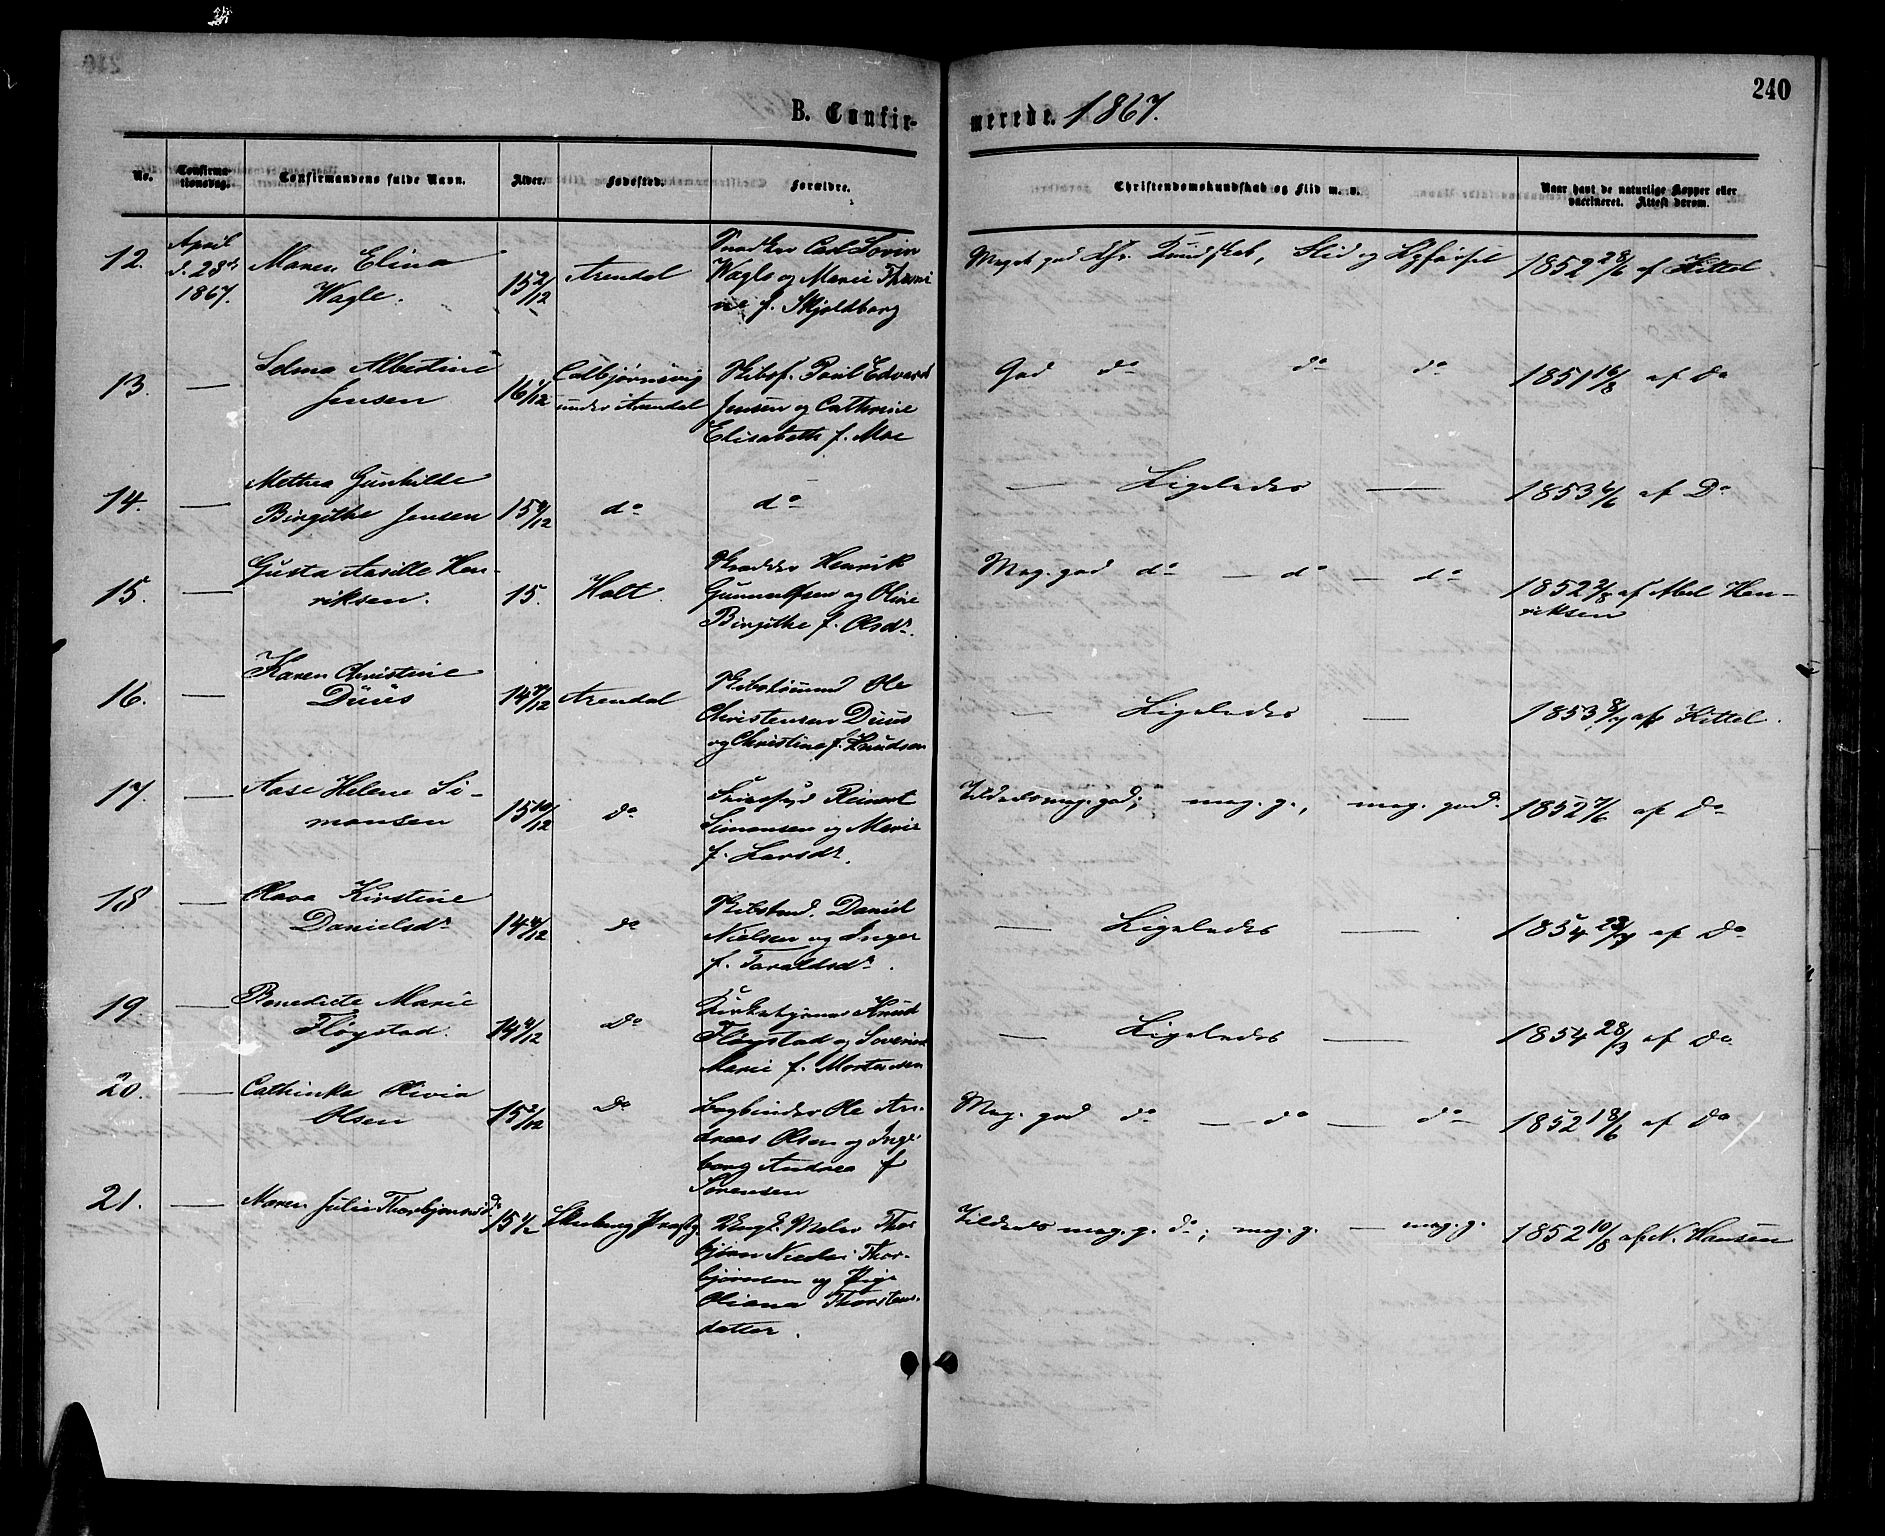 240
B. Confirmerede. 1867.
No. Confirmationsdag. Confirmandens fulde Navn. Alder. Fødested. Forældre. Christendomskundskab og Flid m. v. Naar havt de naturlige Kopper eller vaccineret. Attest derom.
12. April d. 28de 1867. Maren Elina Wagle. 15 2/12 Arendal Carl Wagle og Marie f. Skjoldborg Meget god Chr. Kundskab, Flid og Opførsel 1852 28/6 af Kittel.
13. — Selma Albertine Jensen 16 1/12 Colbjørnsvig under Arendal Skibsf. Poul Edvard Jensen og Cathrine Elisabeth f. Moe God do do do 1851 16/8 af do
14. — Methea Gunhilde Birgithe Jensen do do — Ligeledes — 1853 af Do
15. — Gusta Henriksen. 15. Holt. Henrik og Oline Birgithe f. Olsdr. Meg. god do — do — do 1852 af Abel Henriksen
16. — Karen Christine Duus Arendal Skibstømmmd Ole Christensen Duus og Christine f. Knudsen — Ligeledes — 1853 af Kittel.
17. — Aase Helene Simonsen 15 10/12 do Reinert Simonsen og Marie f. Larsdr. Tildeels meg. god; meg. g., meg. god. 1852 af do
18 — Olava Kirstine Danielsdr do Skibstmd. Daniel Nielsen og Inger f. Taraldsdr. — Ligeledes — 1854 af do
19. — Benedicte Marie Fløystad. do Knud Fløystad og Marie f. Mortensen — Ligeledes — 1854 28/3 af do
20. — Cathinka Olivia Olsen do Bogbinder Ole Andreas Olsen og Ingeborg Andrea f Sørensen Meg. god do — do — do 1852 18/6 af do
21. — Maren Julie Thorbjørnsdr 15 1/2 Ungk. Maler Thorbjørn Thorbjørnsen og Pige Oliana Thorstensdatter. Tildeels meg. g. do; meg. g. — meg. g. 1852 10/8 af N. Hansen